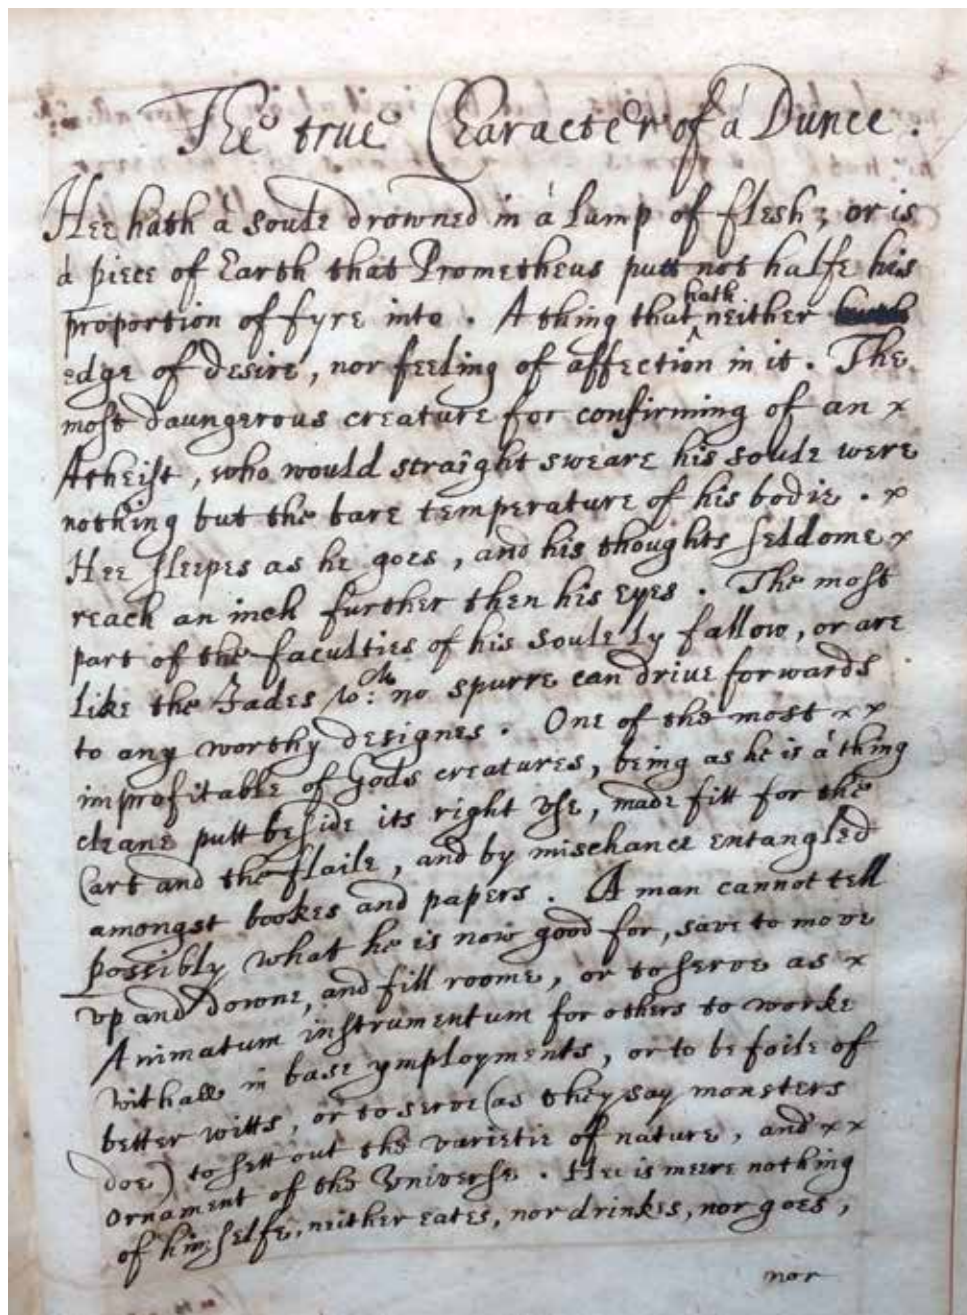 The true Character of a Dunce.
Hee hath à soule drowned in à lump of flesh; or is
à piece of Earth that Prometheus putt not halfe his
proportion of fyre into. A thing that hath neither
edge of desire, nor feeling of affection in it. The
most daungerous creature for confirming of an x
Atheist, who would straight sweare his soule were
nothing but the bare temperature of his bodie. x
Hee sleepes as he goes, and his thoughts seldome x
reach an inch further then his eyes. The most
part of the faculties of his soule ly fallow, or are
like the Jades w:ch no spurre can drive forwards
to any worthy designes. One of the most x x
improfitable of Gods creatures, being as he is à thing
cleane putt beside its right vse, made fitt for the
Cart and the flaile, and by mischance entangled
amongst bookes and papers. A man cannot tell
possibly what he is now good for, save to move
vp and downe, and fill roome, or to serve as x
Animatum instrumentum for others to worke
withall in base ymployments, or to be foile of
better witts, or to serve (as they say monsters
doe) to sett out the varietie of nature, and x x
Ornament of the Vniverse. Hee is meere nothing
of himselfe, neither eates, nor drinkes, nor goes,
nor